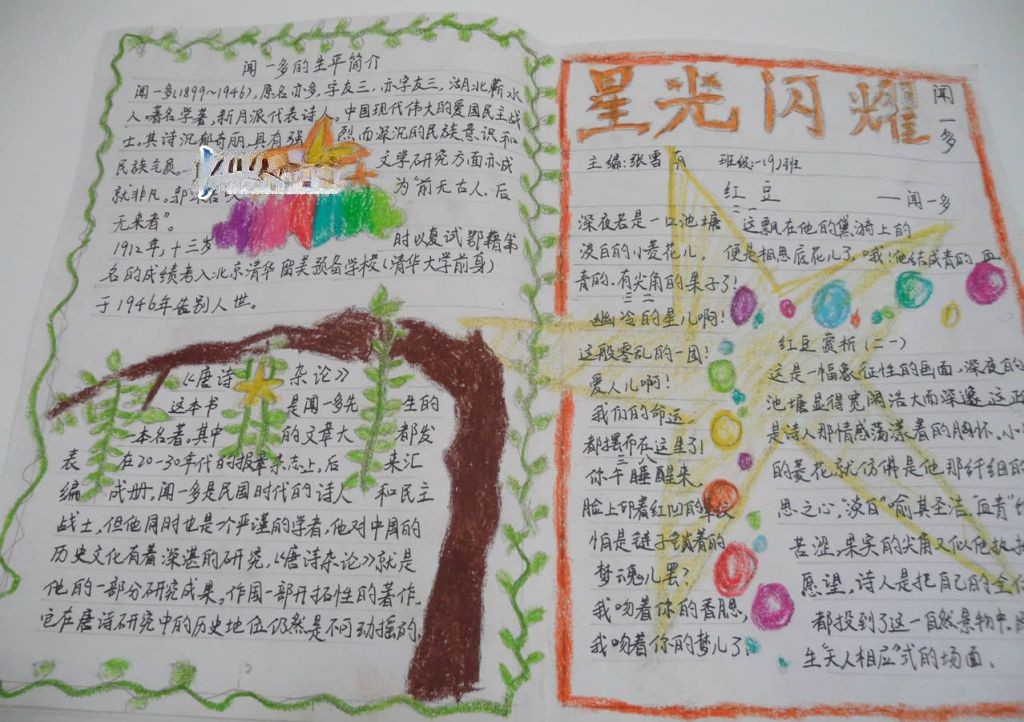 闻一多的生平简介
闻一多(1899~1946),原名亦多,字友三,亦字友三,湖北蕲水
人,著名学者,新月派代表诗人。中国现代伟大的爱国民主战
士。其诗沉郁奇丽,具有强烈而深沉的民族意识和
民族气质。 文学研究方面亦成
就非凡。 为“前无古人,后
无来者”。
1912年,十三岁 时以复试鄂籍第
名的成绩考入北京清华留美预备学校(清华大学前身)
于1946年告别人世。
《唐诗杂论》
这本书是闻一多先生的
一本名著。其中的文章大都发
表在20-30年代的报章杂志上,后来汇
编成册,闻一多是民国时代的诗人和民主
战士,但他同时也是一个严谨的学者,他对中国的
历史文化有着深湛的研究,《唐诗杂论》就是
他的一部分研究成果。作国一部开拓性的著作,
它在唐诗研究中的历史地位仍然是不可动摇的。
星光闪耀
闻一多
主编:张雪 班级:一(9)班
红豆
——闻一多
二一
深夜若是一口池塘 这飘在他的黛漪上的
淡白的小菱花儿, 便是相思底花儿了,哦!他结成青的,血
青的,有尖角的果子了!
三二
幽冷的星儿啊!
这般零乱的一团!
爱人儿啊!
我们的命运,
都摆布在这里了!
三八
你午睡醒来,
脸上印着红凹的簟纹
怕是链子锁着的
梦魂儿罢?
我吻着你的香腮,
我吻着你的梦儿了。
红豆赏析(二一)
这是一幅象征性的画面,深夜的
池塘显得宽阔浩大而深邃,这正
是诗人那情感荡漾着的胸怀,小
的菱花,就仿佛是他那纤细的
思之心,“淡白”喻其圣洁,“血青”
苦涩,果实的尖角又似他
愿望,诗人是把自己的全
都投到了这一自然景物中,
生“天人相应”式的场面。